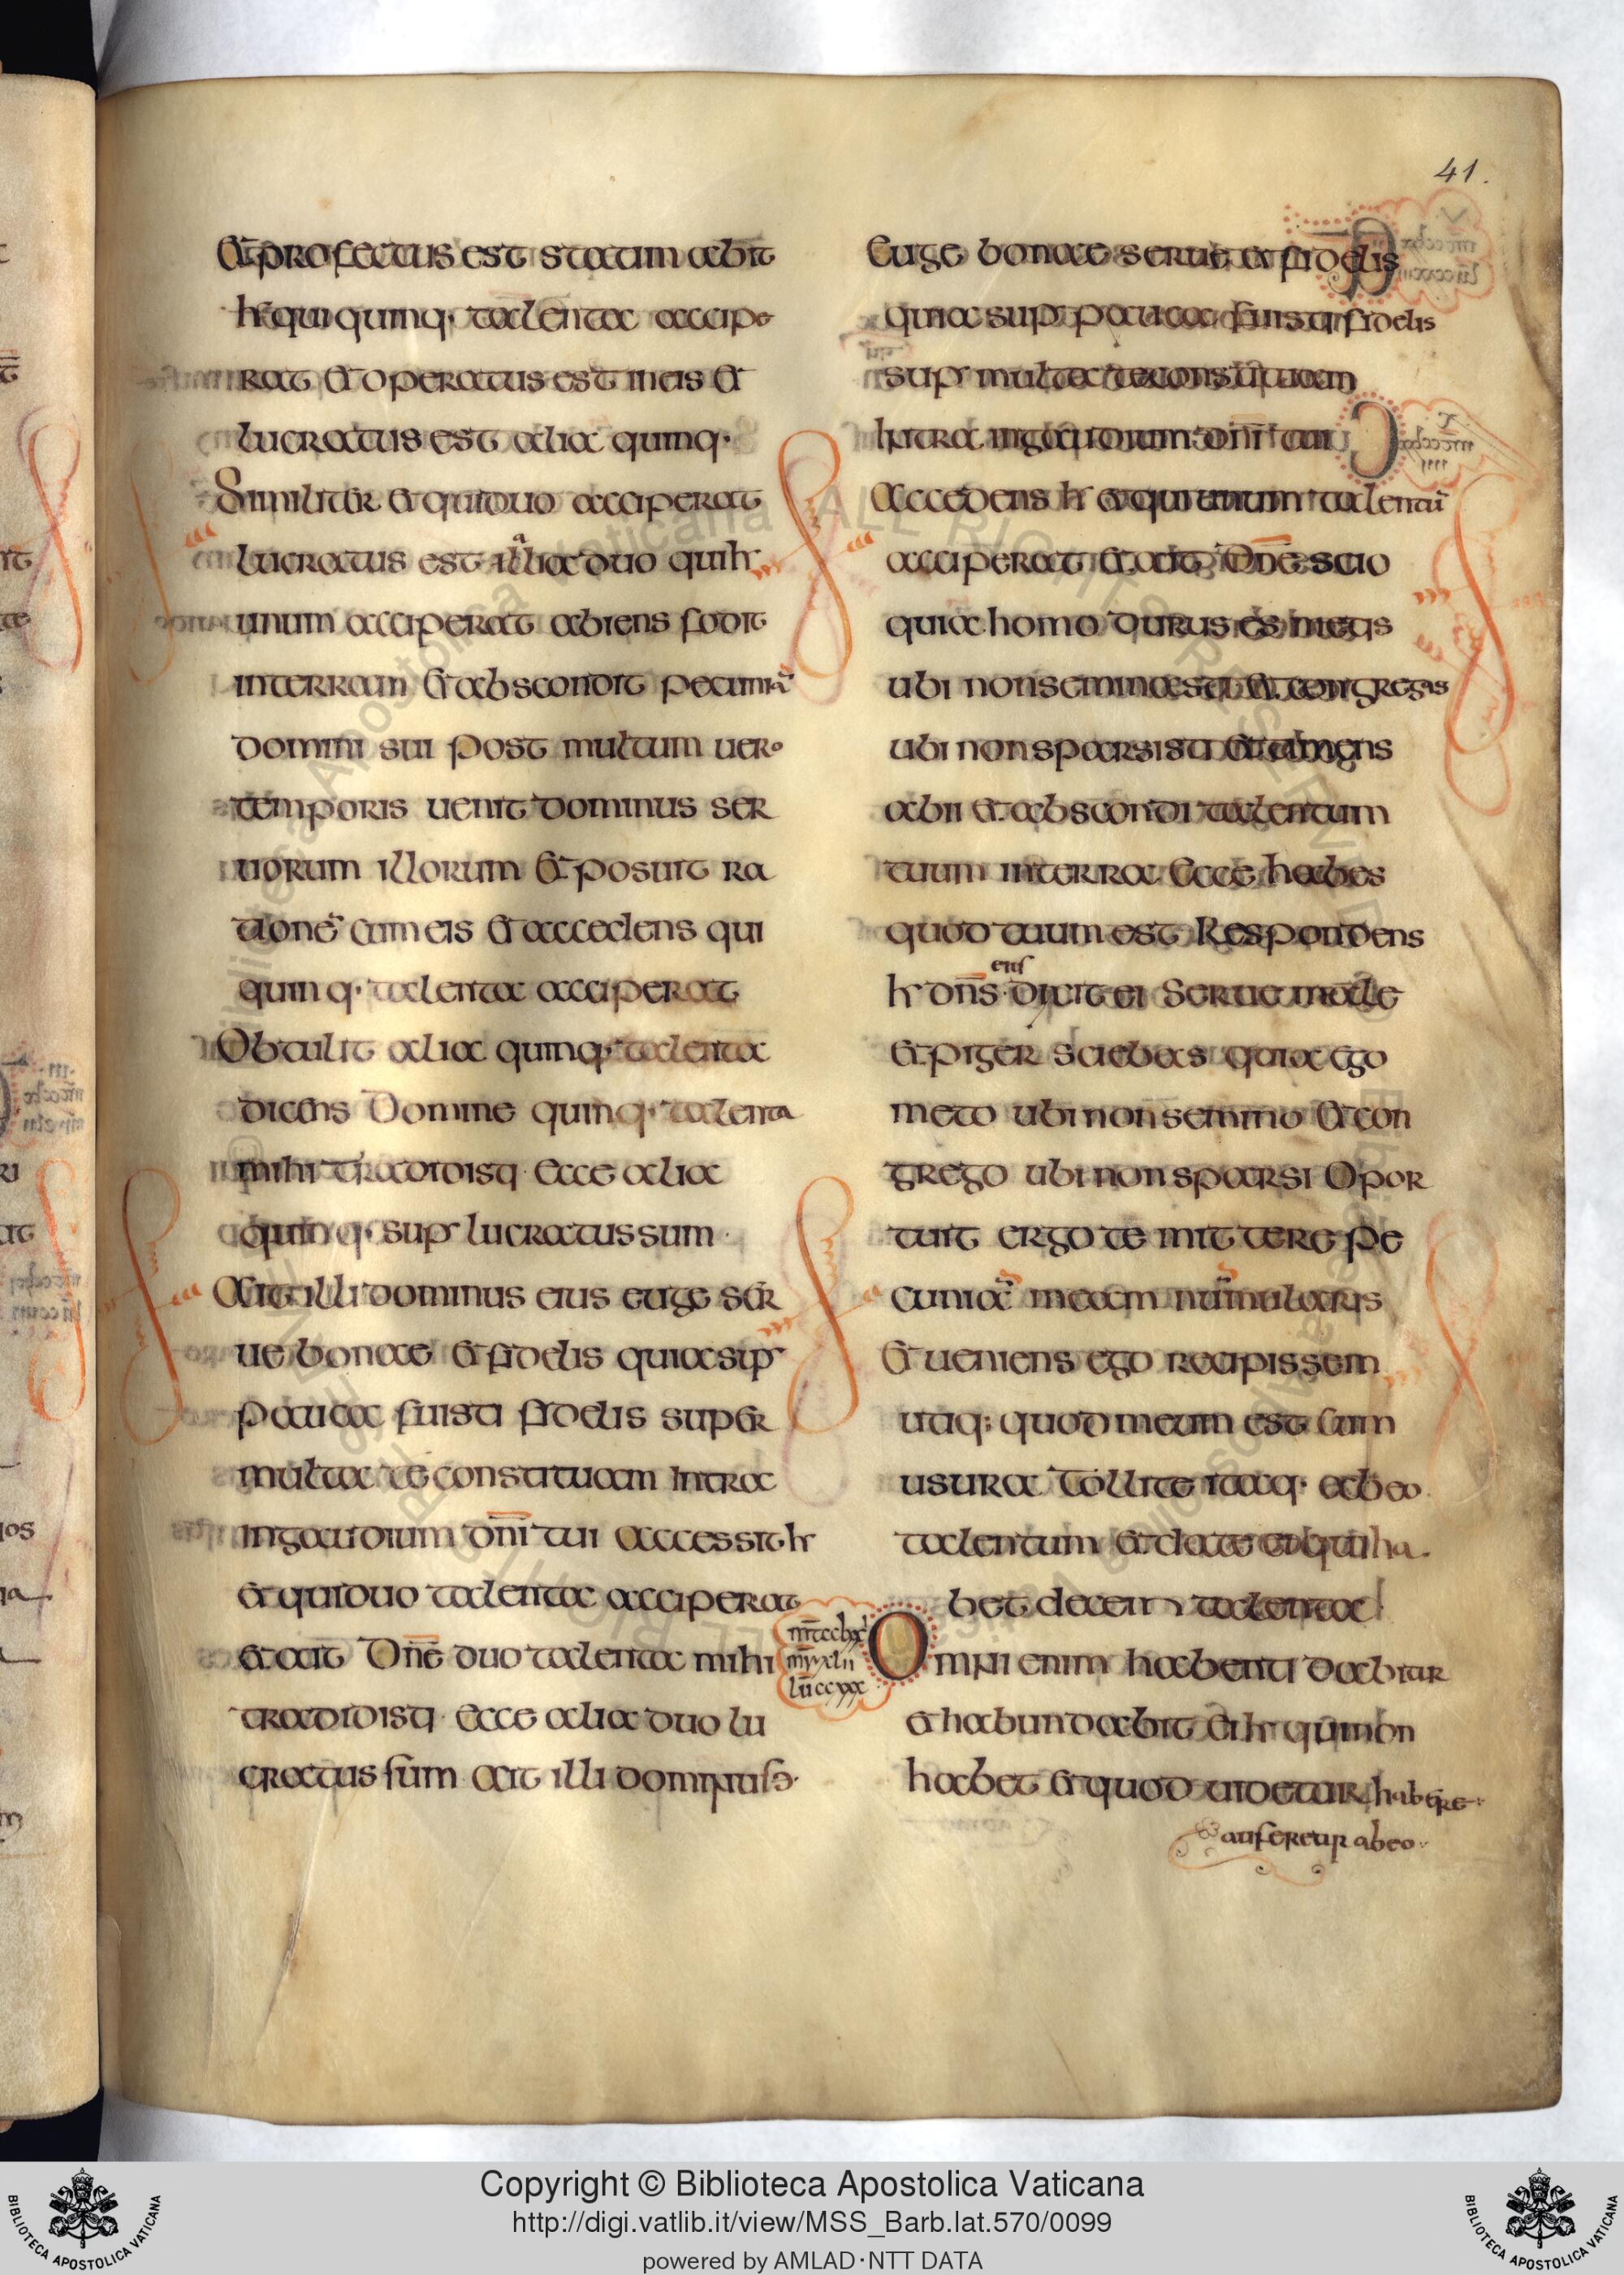 41.
Et profectus est statim abiit
ħ qui quinq· talenta accipe
rat et operatus est in eis et
lucratus est alia quinq·
Similiter et qui duo acciperat
lucratus est alia duo qui ħ
unum acciperat abiens fodit
in terram et abscondit pecuniā
domini sui post multum uero
temporis uenit dominus ser
uorum illorum et posuit ra
tionē cum eis et accedens qui
quinq· talenta acciperat
Obtulit alia quinq· talenta
dicens Domine quinq· talenta
mihi tradidisti Ecce alia
quinq· sup lucratus sum
Ait illi dominus eius euge ser
ue bonae et fidelis quia sup
pauca fuisti fidelis super
multa te constituam Intra
in gaudium dn̄i tui Accessit ħ
et qui duo talenta acciperat
et ait Dn̄e duo talenta mihi
tradidisti Ecce alia duo lu
cratus sum Ait illi dominus
Euge bonae serue et fidelis
quia sup pauca fuisti fidelis
sup multa te constituam
Intra in gaudium dn̄i tui
Accedens ħ et qui unum talentū
acciperat et ait Dn̄e scio
quia homo durus es metis
ubi non seminasti et congregas
ubi non sparsisti et timens
abii et abscondi talentum
tuum in terra Ecce habes
quod tuum est Respondens
ħ dn̄s eius dixit ei Serue male
et piger sciebas quia ego
meto ubi non semino et con
grego ubi non sparsi Opor
tuit ergo te mittere pe
cuniā meam nūmularis
Et ueniens ego recipissem
utiq; quod meum est cum
usura Tollite itaq· ab eo
talentum et date ei qui ha
bet decem talenta
Omni enim habenti dabitur
et habundabit ei ħ qui non
habet et quod uidetur habere
auferetur ab eo
Copyright © Biblioteca Apostolica Vaticana
http://digi.vatlib.it/view/MSS_Barb.lat.570/0099
powered by AMLAD·NTT DATA
BIBLIOTECA APOSTOLICA VATICANA
BIBLIOTECA APOSTOLICA VATICANA